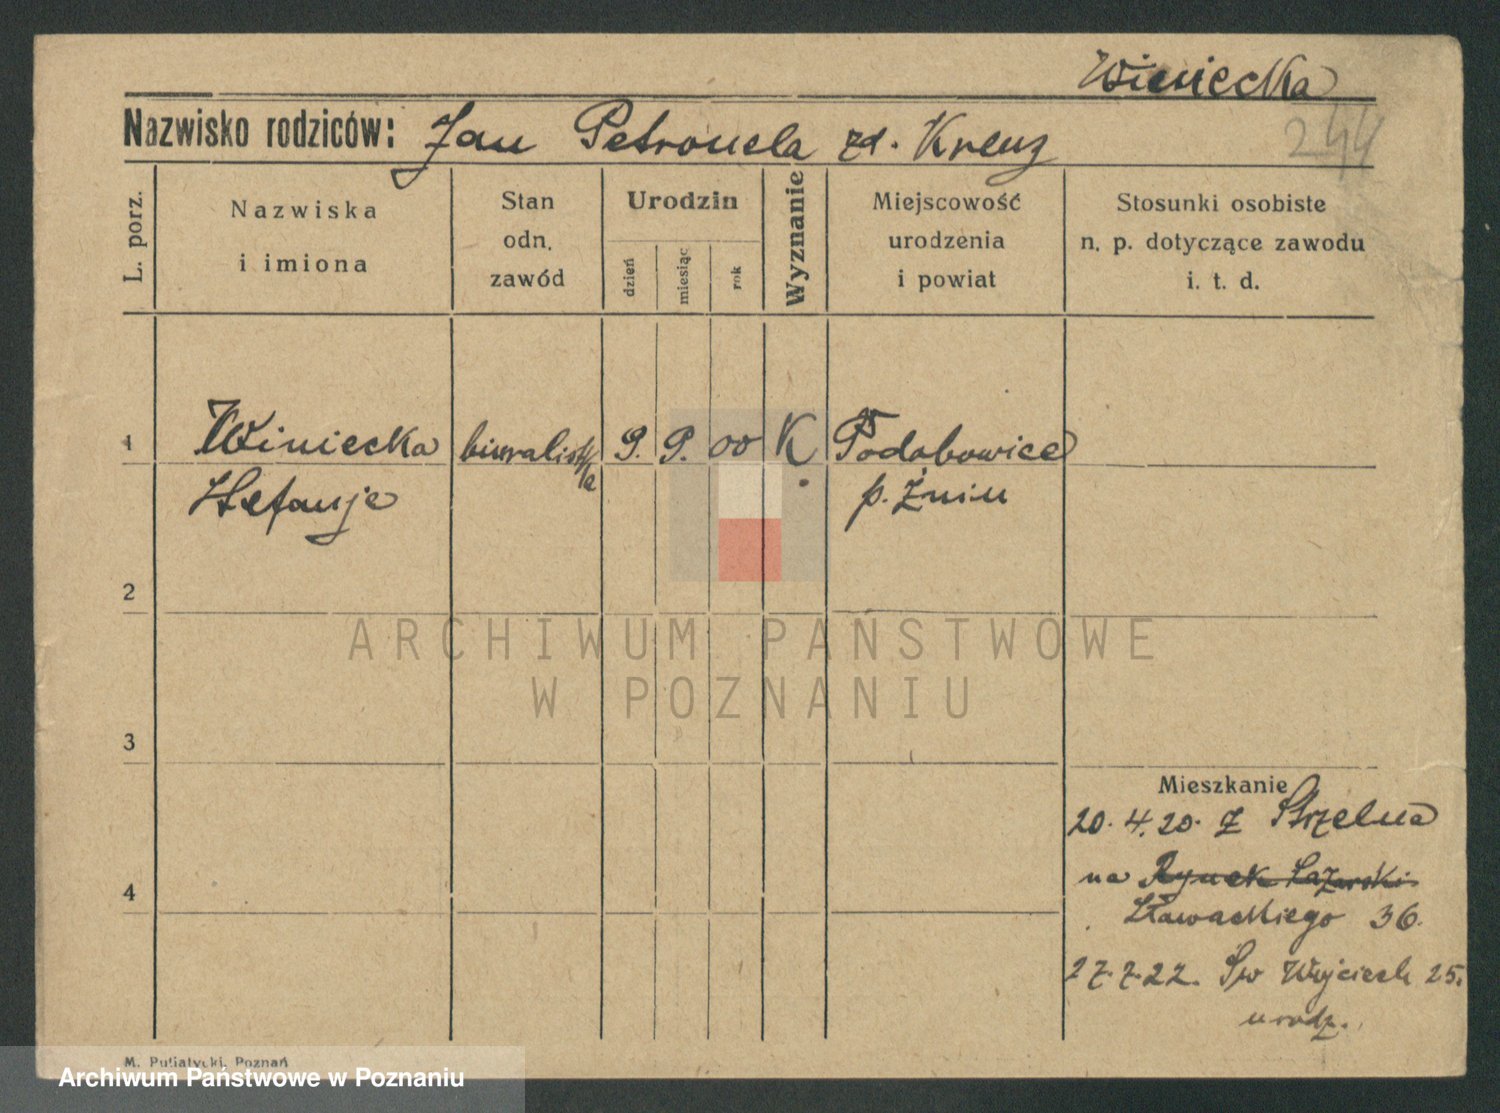 Winiecka
Nazwisko rodziców: Jan Petronela zd. Kreuz
244
L. porz.
Nazwiska
i imiona
Stan
odn.
zawód
Urodzin
dzień
miesiąc
rok
Wyznanie
Miejscowość
urodzenia
i powiat
Stosunki osobiste
n. p. dotyczące zawodu
i. t. d.
1 Winiecka biuralistka 9. 9. 00 K. Podobowice
Stefanje p. Żnin
2
ARCHIWUM PAŃSTWOWE
W POZNANIU
3
Mieszkanie
20. 4. 20. z Strzelna
na Rynek Łazarski
4
Sławackiego 36.
27. 7. 22. Św Wojciech 25.
urodz.
M. Putiatycki, Poznań
Archiwum Państwowe w Poznaniu